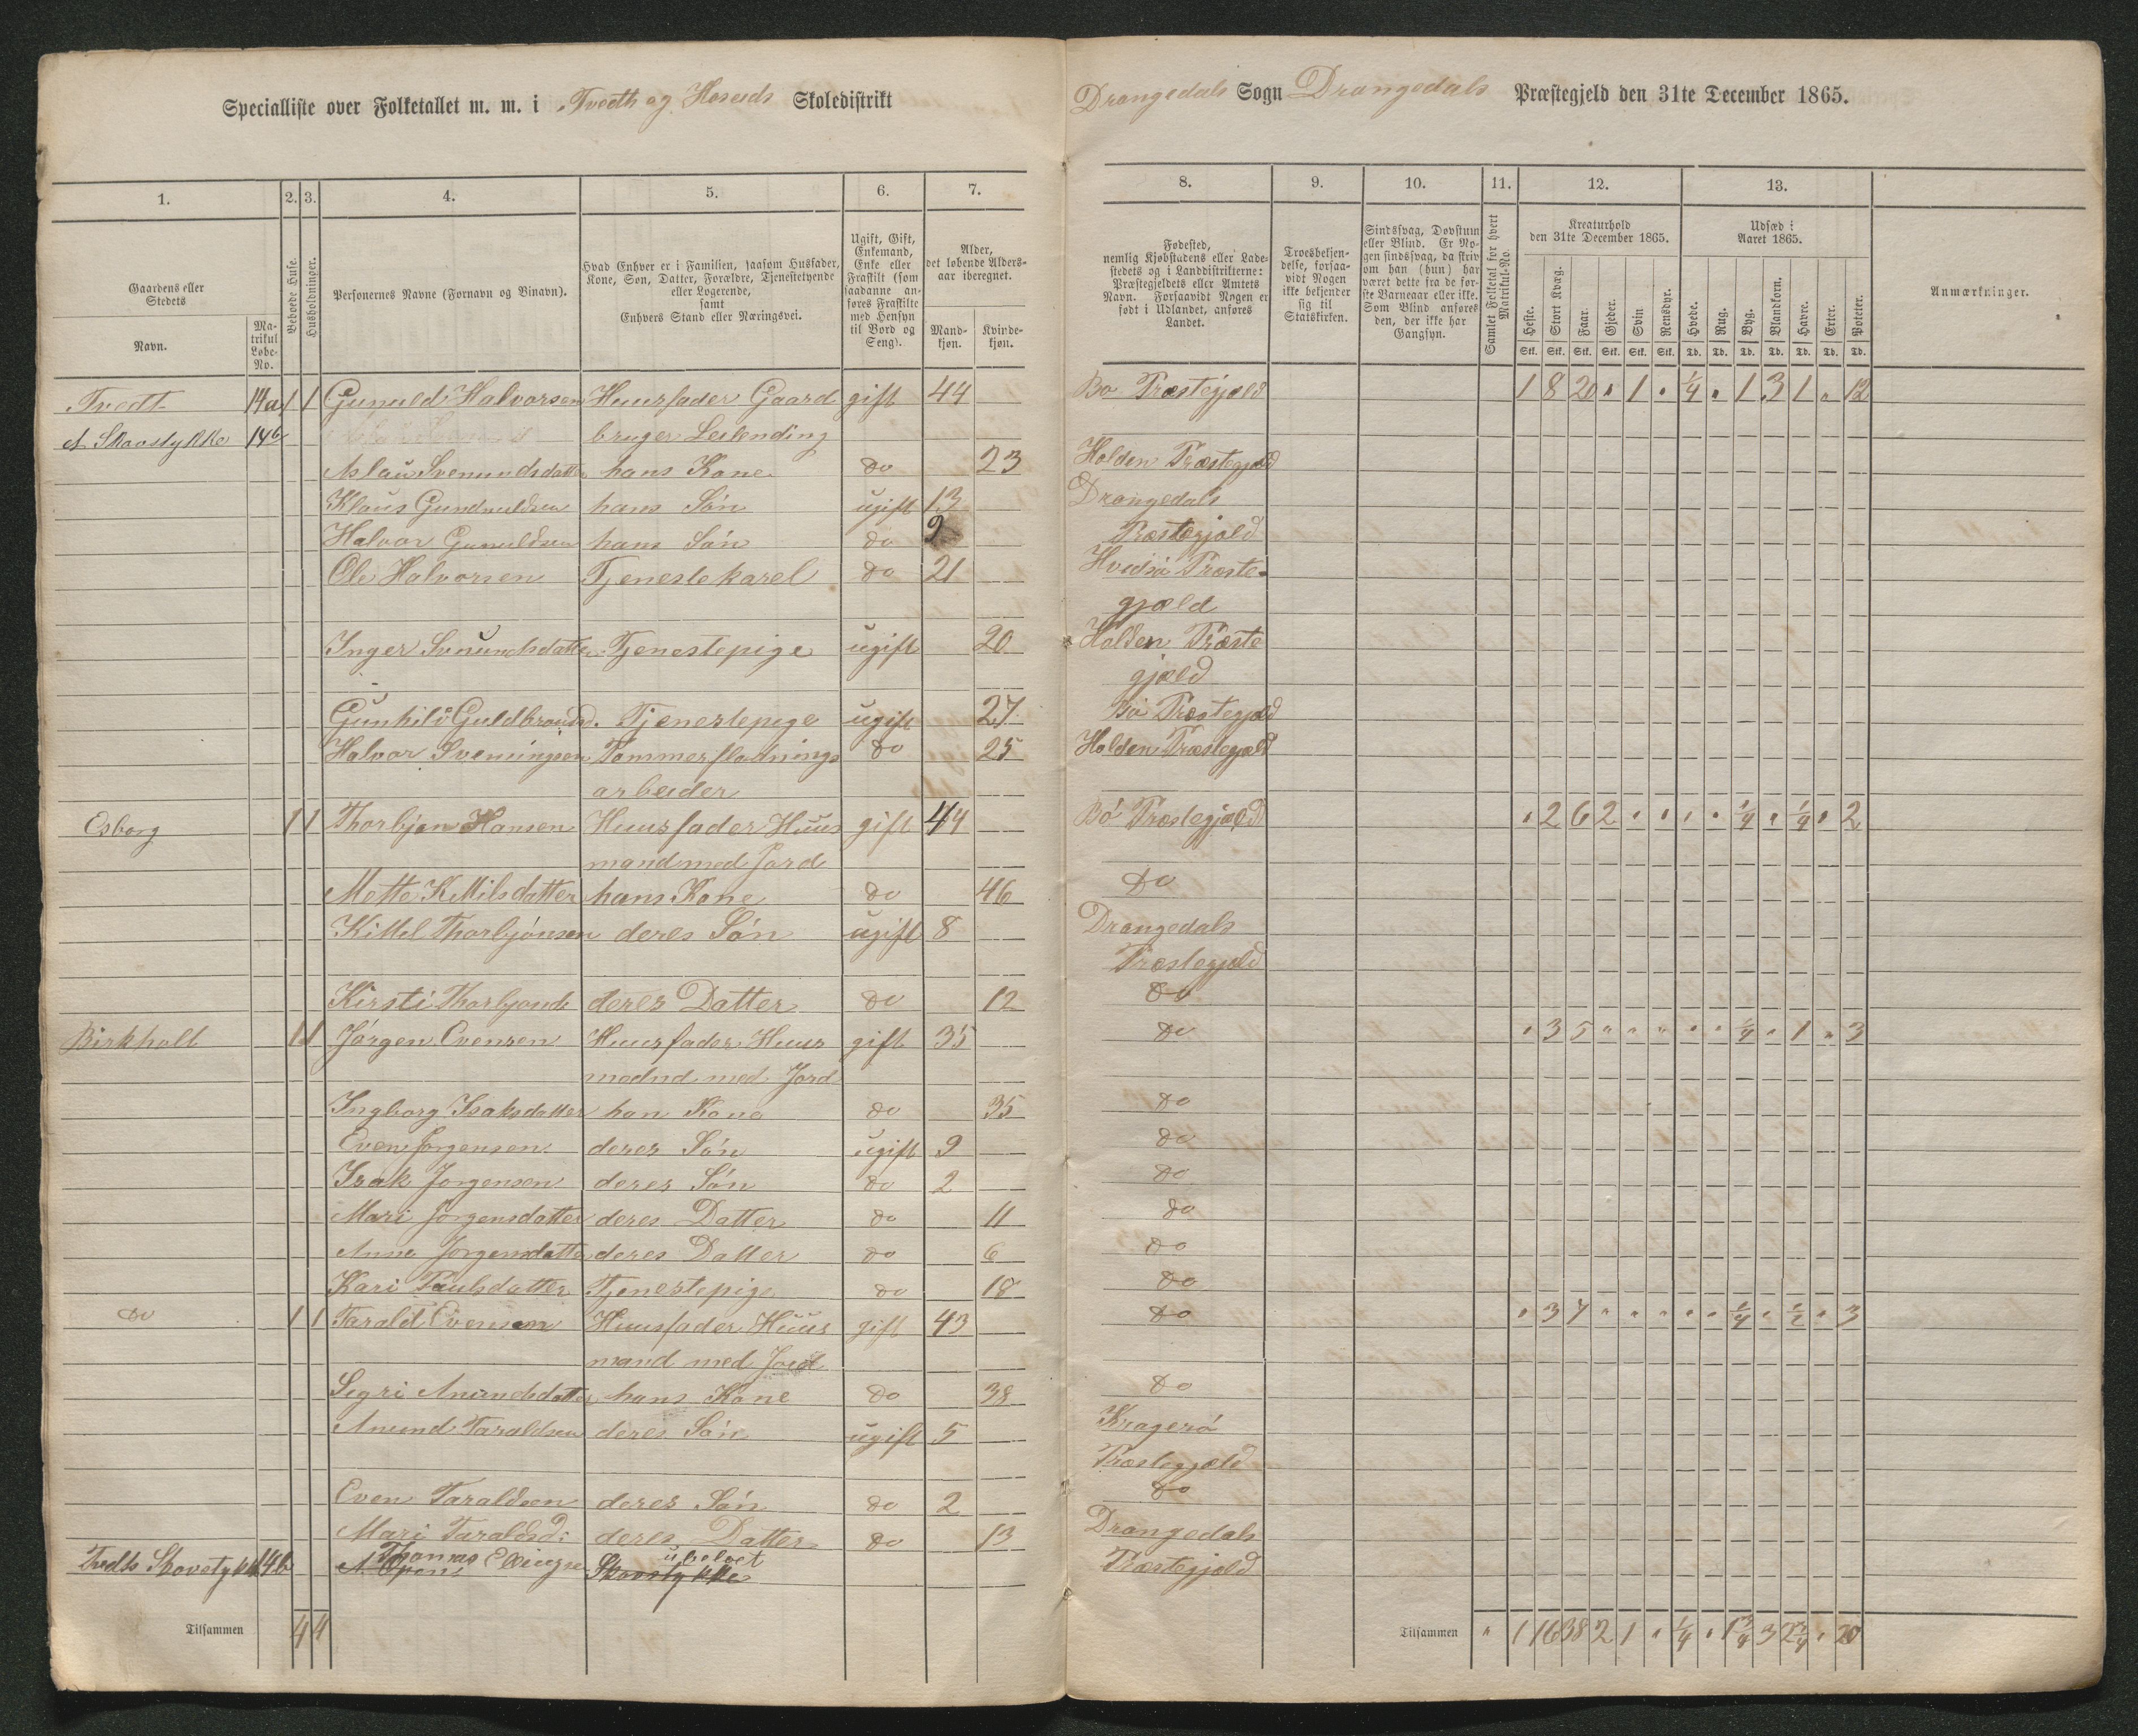 Specialliste over Folketallet m. m. i Tvedth og Hoseids Skoledistrikt
Drangedals Sogn Drangedals Præstegjeld den 31te December 1865.
1. 2. 3. 4. 5. 6. 7.
8. 9. 10. 11. 12. 13.
Gaardens eller Stedets
Navn.
Matrikul Løbe-No.
Beboede Huse.
Husholdninger.
Personernes Navne (Fornavn og Binavn).
Hvad Enhver er i Familien, saasom Husfader,
Kone, Søn, Datter, Forældre, Tjenestetyende
eller Logerende,
samt
Enhvers Stand eller Næringsvei.
Ugift, Gift,
Enkemand,
Enke eller
Fraskilt (som
saadanne an-
føres Fraskilte
med Hensyn
til Bord og
Seng).
Alder,
det løbende Alders-
aar iberegnet.
Mand-
kjøn.
Kvinde-
kjøn.
Fødested,
nemlig Kjøbstadens eller Lade-
stedets og i Landdistrikterne:
Præstegjeldets eller Amtets
Navn. Forsaavidt Nogen er
født i Udlandet, anføres
Landet.
Troesbekjen-
delse, forsaa-
vidt Nogen
ikke bekjender
sig til
Statskirken.
Sindssvag, Døvstum
eller Blind. Er No-
gen sindssvag, da skriv
om han (hun) har
været dette fra de før-
ste Barneaar eller ikke.
Som Blind anføres
den, der ikke har
Gangsyn.
Samlet Folketal for hvert
Matrikul-No.
Kreaturhold
den 31te December 1865.
Heste. Stort Kvæg. Faar. Gjeder. Svin. Rensdyr.
Stk. Stk. Stk. Stk. Stk. Stk.
Udsæd i
Aaret 1865.
Hvede. Rug. Byg. Blandkorn. Havre. Erter. Poteter.
Td. Td. Td. Td. Td. Td. Td.
Anmærkninger.
Tvedt 14a 1 1 Gunuld Halvorsen Huusfader Gaard gift 44 Bo Præstegjæld 1 8 20 " 1 " 1/4 " 1 3 1 " 12
et Skovstykke 14b bruger Leslending
Aslau Svenundsdatter hans Kone do 23 Holden Præstegjæld
Klaus Gundnuldsen hans Sön ugift 13 Drangedals
Halvor Gunuldsen hans Sön do 9 Præstegjæld
Ole Halvorsen Tjenestekarel do 21 Hvidsö Præste-
gjæld
Inger Svnundsdatter Tjenestepige ugift 20 Holden Præste
gjæld
Gunhild Guldbrandsd. Tjenestepige ugift 27 Bö Præstegjæld
Halvor Sveningsen Tømmerflødnings do 25 Holden Præstegjæld
arbeider
Esborg 1 1 Thorbjøn Hansen Huusfader Huus gift 44 Bö Præstegjæld " 2 6 2 " " " " 1/4 " 1/4 " 2
mand med Jord
Mette Kittilsdatter hans Kone do 46 Do
Kittel Thorbjönsen deres Sön ugift 8 Drangedals
Præstegjæld
Kirsti Thorbjønsd deres Datter do 12 do
Birkholt 1 1 Jörgen Evensen Huusfader Huus gift 35 do " 3 5 " " " " " 1/4 " 1 " 3
madnd med Jord
Ingborg Isaksdatter han Kone do 35 do
Even Jørgensen deres Sön ugift 9 do
Isak Jørgensen deres Sön do 2 do
Mari Jørgensdatter deres Datter do 11 do
Anne Jørgensdatter deres Datter do 6 do
Kari Paulsdatter Tjenestepige do 18 do
do 1 1 Tarald Evensen Huusfader Huus gift 43 do " 3 7 " " " " " 1/4 " 1/2 " 3
mand med Jord
Segri Anundsdatter hans Kone do 38 do
Anund Taraldsen deres Sön ugift 5 Kragerö
Præstegjæld
Even Taraldsen deres Sön do 2 do
Mari Taraldsd: deres Datter do 13 Drangedals
Thomas ubeboet
Tvedts Skovstykke 14b Ellingsen Skovstykke Præstegjæld
Tilsammen 4 4 Tilsammen " 1 16 38 2 1 " 1/4 " 1 3/4 3 2 3/4 " 20